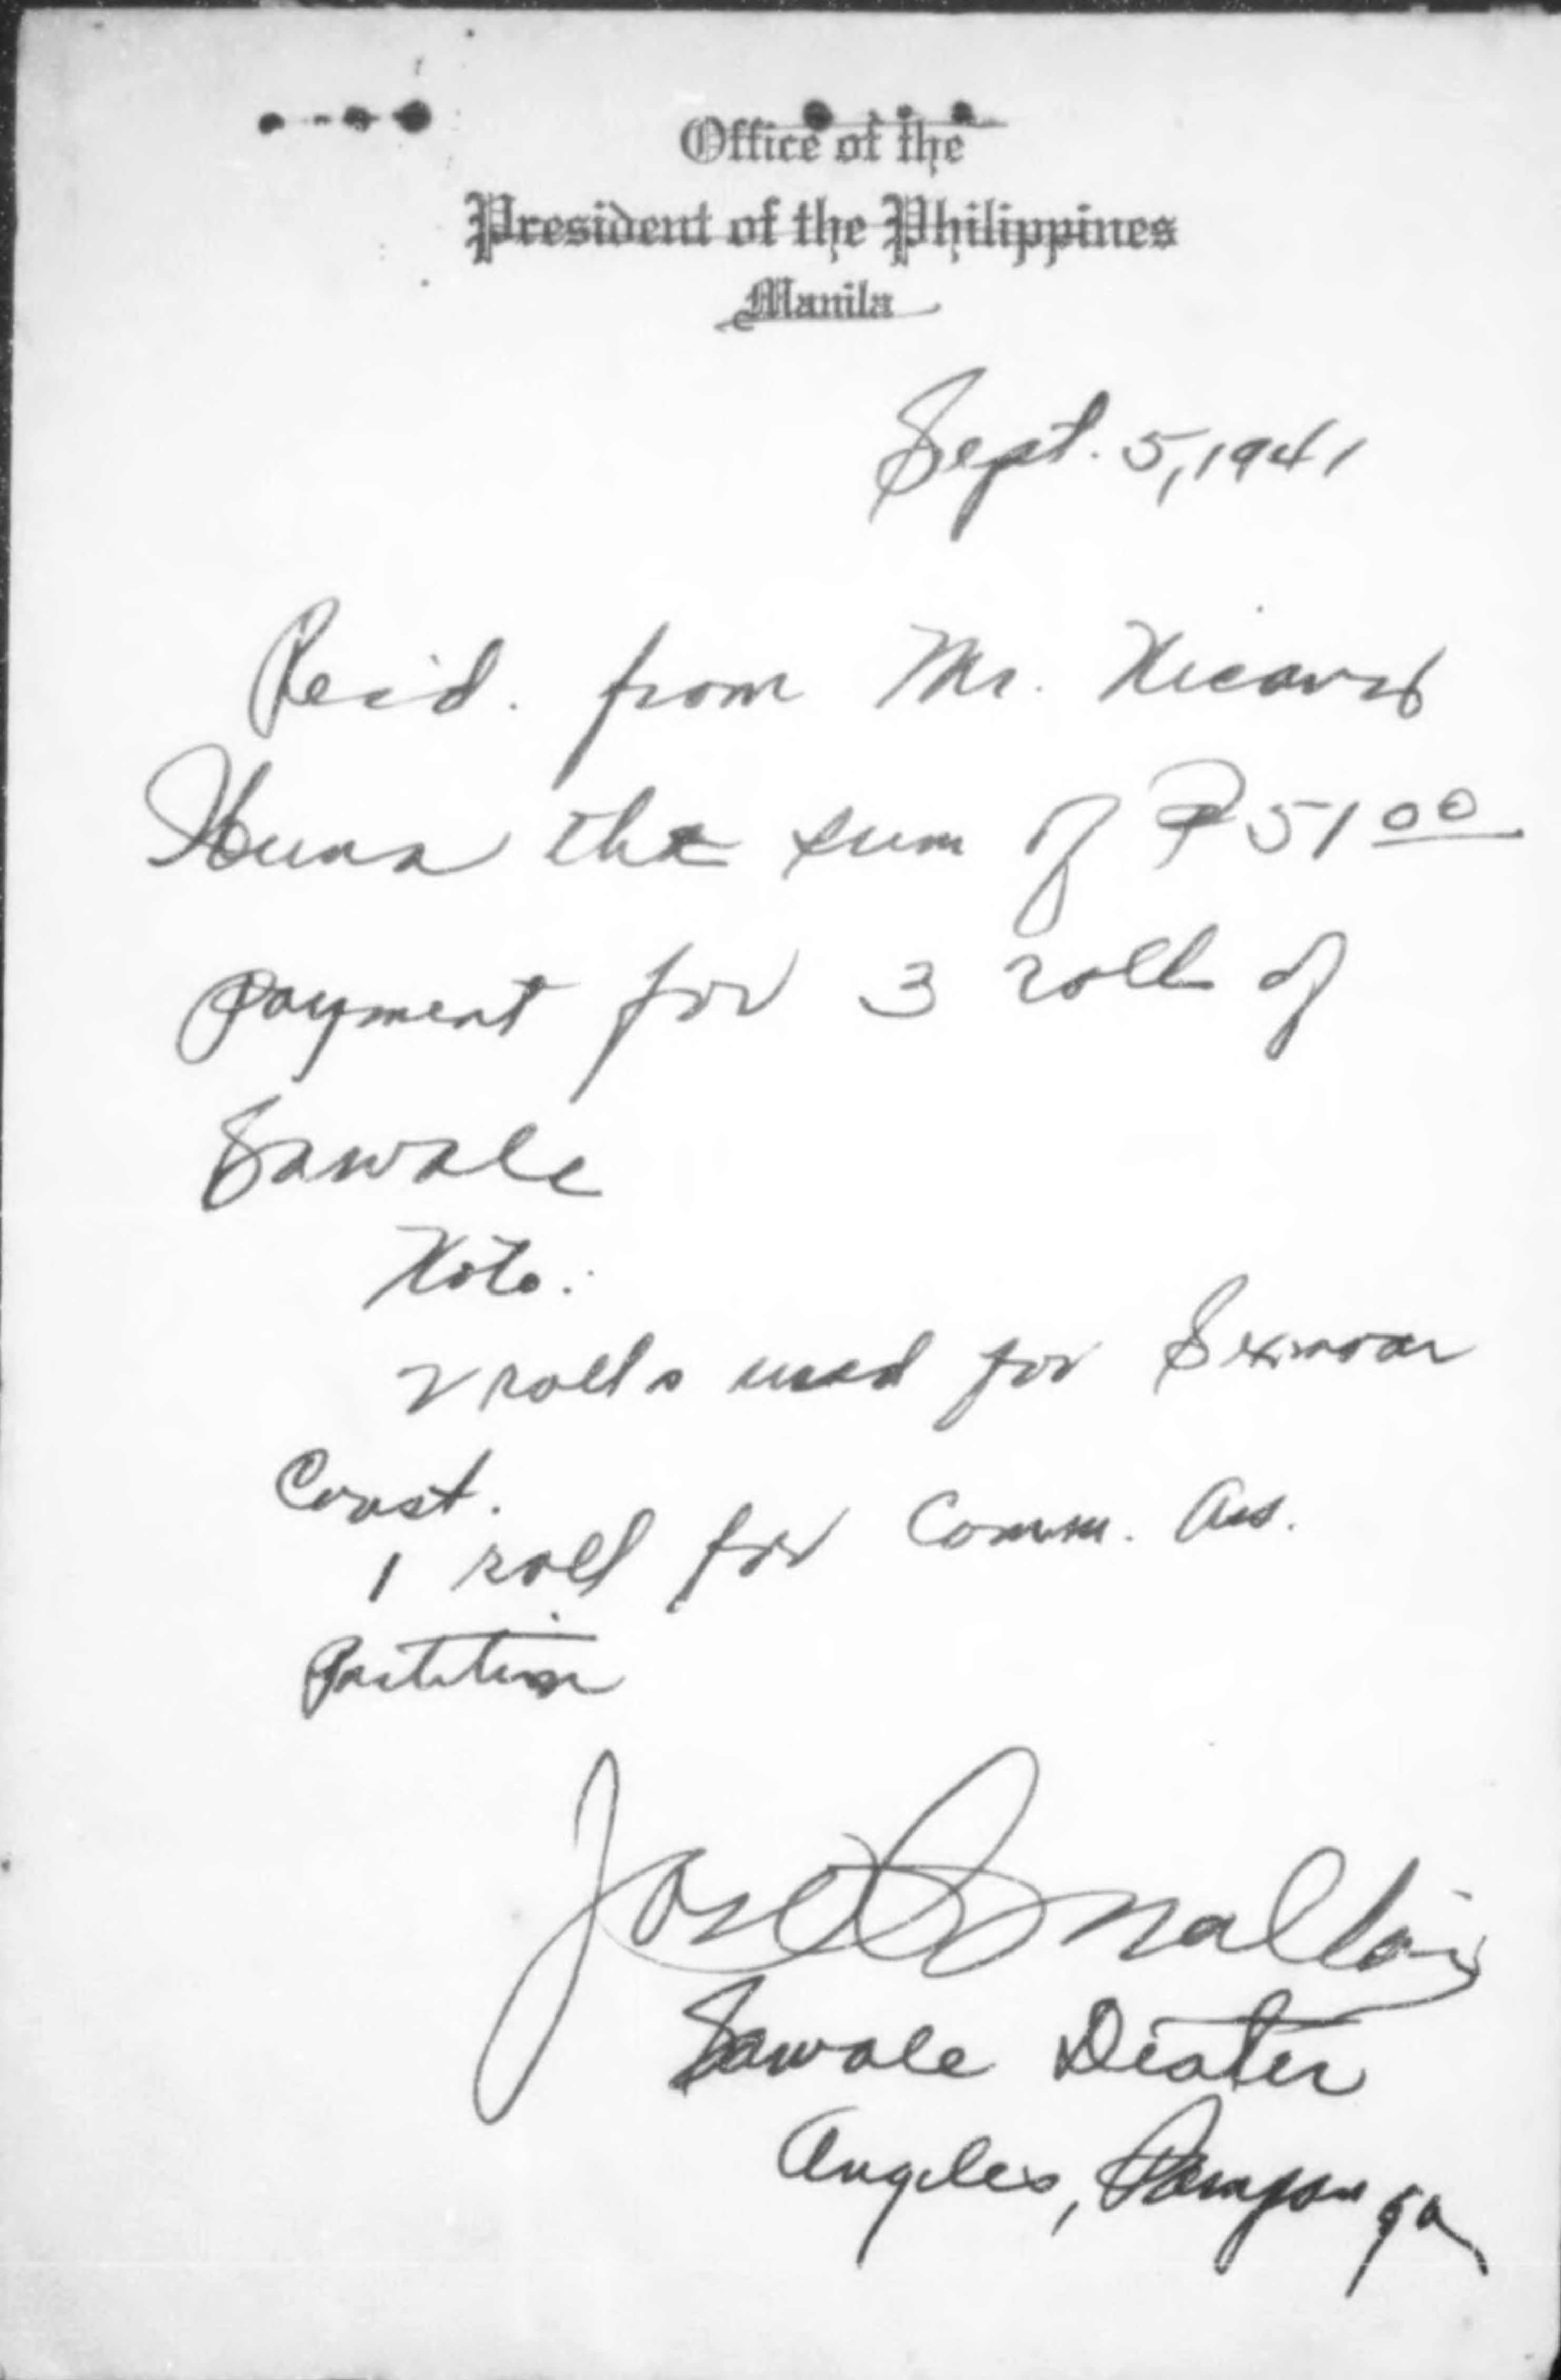 Office of the
President of the Philippines
Manila
Sept. 5, 1941
Rec'd. from Mr.
the sum of ₱51 00
payment for 3 roll of
Sawale
Note:
2 rolls used for
Const.
1 roll for Comm. Ass.
Partition
Jose
Sawale Dealer
Angeles, Pampanga